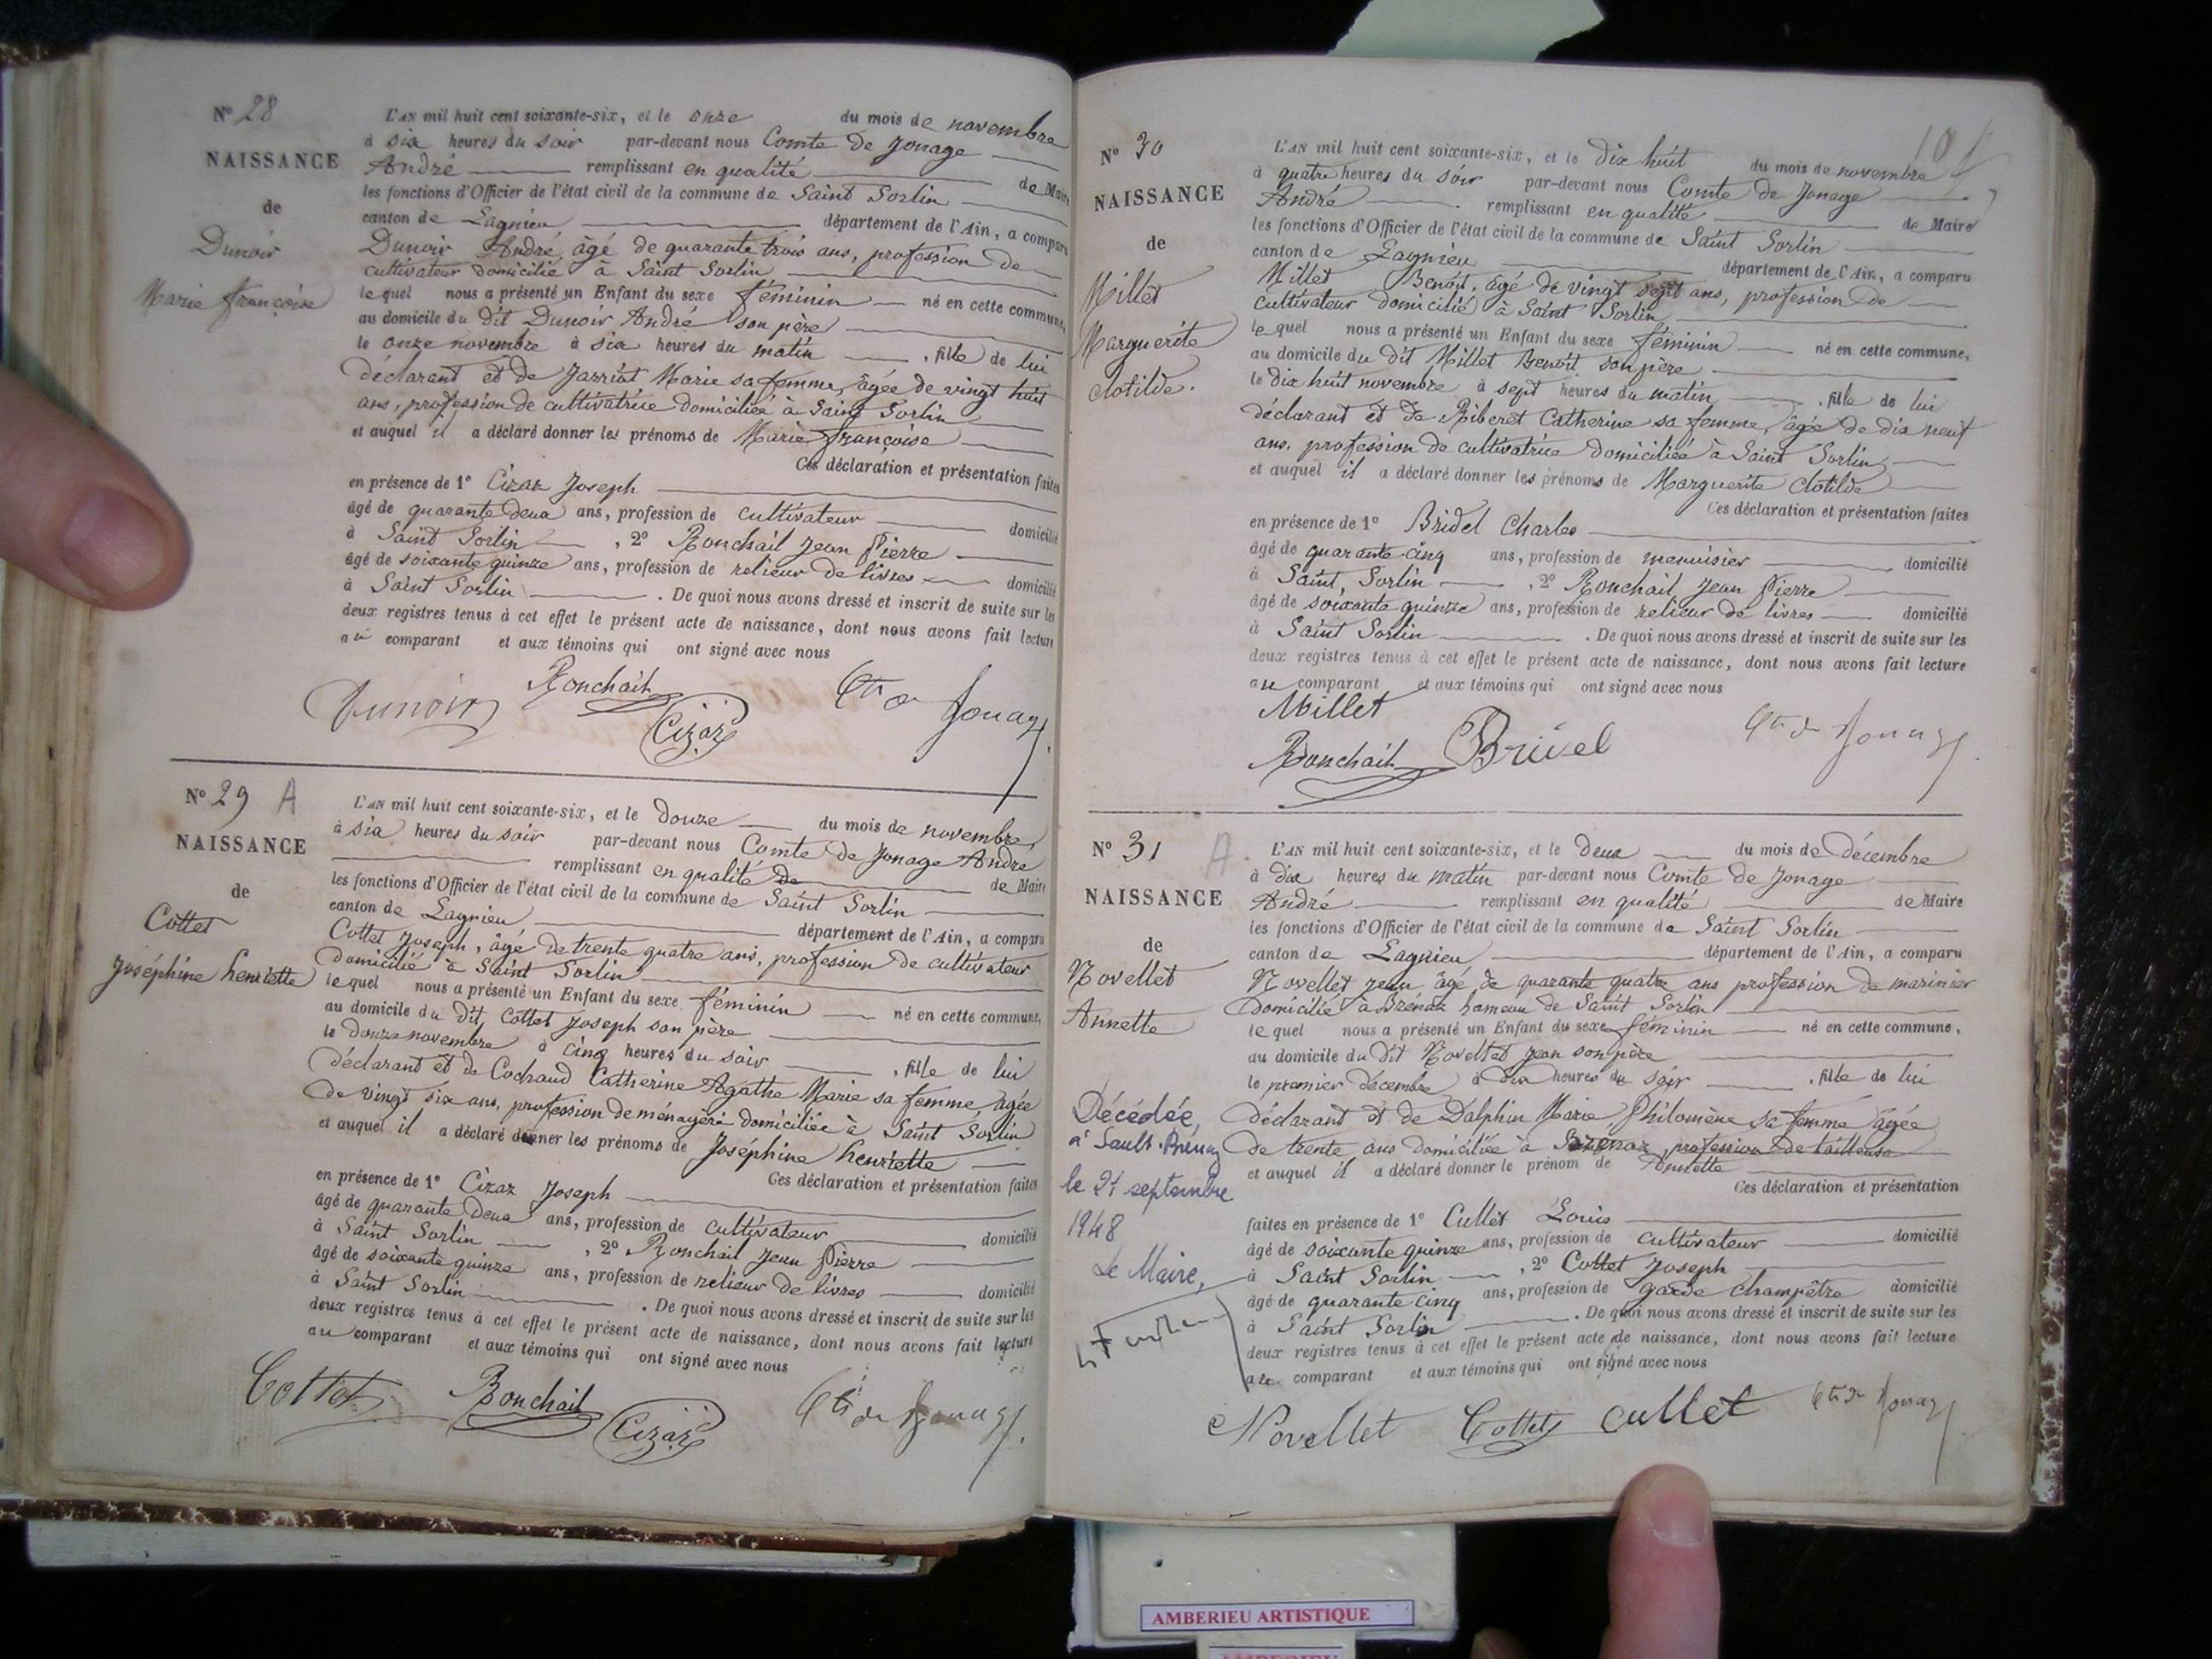 N° 28
NAISSANCE
de
Dunoir
Marie françoise
L'AN mil huit cent soixante-six, et le onze du mois de novembre
à six heures du soir par-devant nous Comte de Jonage
André remplissant en qualité de Maire
les fonctions d'Officier de l'état civil de la commune de Saint Sorlin
canton de Lagnieu département de l'Ain, a comparu
Dunoir André, âgé de quarante trois ans, profession de
cultivateur domicilié à Saint Sorlin
lequel nous a présenté un Enfant du sexe féminin né en cette commune,
au domicile du dit Dunoir André son père
le onze novembre à six heures du matin , fille de lui
déclarant et de Jarriat Marie sa femme, âgée de vingt huit
ans, profession de cultivatrice domiciliée à Saint Sorlin
et auquel il a déclaré donner les prénoms de Marie françoise
Ces déclaration et présentation faites
en présence de 1° Cizar Joseph
âgé de quarante deux ans, profession de cultivateur domicilié
à Saint Sorlin , 2° Ronchail Jean Pierre
âgé de soixante quinze ans, profession de relieur de livres domicilié
à Saint Sorlin . De quoi nous avons dressé et inscrit de suite sur les
deux registres tenus à cet effet le présent acte de naissance, dont nous avons fait lecture
au comparant et aux témoins qui ont signé avec nous
Dunoir Ronchail Cizar Cte de Jonage
N° 29 A
NAISSANCE
de
Cottet
Joséphine henriette
L'AN mil huit cent soixante-six, et le douze du mois de novembre,
à six heures du soir par-devant nous Comte de Jonage André
remplissant en qualité de de Maire
les fonctions d'Officier de l'état civil de la commune de Saint Sorlin
canton de Lagnieu département de l'Ain, a comparu
Cottet Joseph, âgé de trente quatre ans, profession de cultivateur
domicilié à Saint Sorlin
lequel nous a présenté un Enfant du sexe féminin né en cette commune,
au domicile du dit Cottet Joseph son père
le douze novembre à cinq heures du soir , fille de lui
déclarant et de Cochaud Catherine Agathe Marie sa femme, âgée
de vingt six ans, profession de ménagère domiciliée à Saint Sorlin
et auquel il a déclaré donner les prénoms de Joséphine henriette
Ces déclaration et présentation faites
en présence de 1° Cizar Joseph
âgé de quarante deux ans, profession de cultivateur domicilié
à Saint Sorlin , 2° Ronchail Jean Pierre
âgé de soixante quinze ans, profession de relieur de livres domicilié
à Saint Sorlin . De quoi nous avons dressé et inscrit de suite sur les
deux registres tenus à cet effet le présent acte de naissance, dont nous avons fait lecture
au comparant et aux témoins qui ont signé avec nous
Cottet Ronchail Cizar Cte de Jonage
N° 30
NAISSANCE
de
Millet
Marguerite
clotilde.
L'AN mil huit cent soixante-six, et le dix huit du mois de novembre
à quatre heures du soir par-devant nous Comte de Jonage
André remplissant en qualité de Maire
les fonctions d'Officier de l'état civil de la commune de Saint Sorlin
canton de Lagnieu département de l'Ain, a comparu
Millet Benoît, âgé de vingt sept ans, profession de
cultivateur domicilié à Saint Sorlin
lequel nous a présenté un Enfant du sexe féminin né en cette commune,
au domicile du dit Millet Benoît son père
le dix huit novembre à sept heures du matin , fille de lui
déclarant et de Riberet Catherine sa femme, âgé de dix neuf
ans, profession de cultivatrice domiciliée à Saint Sorlin
et auquel il a déclaré donner les prénoms de Marguerite Clotilde
Ces déclaration et présentation faites
en présence de 1° Bridel Charles
âgé de quarante cinq ans, profession de menuisier domicilié
à Saint Sorlin , 2° Ronchail Jean Pierre
âgé de soixante quinze ans, profession de relieur de livres domicilié
à Saint Sorlin . De quoi nous avons dressé et inscrit de suite sur les
deux registres tenus à cet effet le présent acte de naissance, dont nous avons fait lecture
au comparant et aux témoins qui ont signé avec nous
Millet
Ronchail Cte de Jonage
N° 31 A.
NAISSANCE
de
Novellet
Annette
L'AN mil huit cent soixante-six, et le deux du mois de décembre
à dix heures du matin par-devant nous Comte de Jonage
André remplissant en qualité de Maire
les fonctions d'Officier de l'état civil de la commune de Saint Sorlin
canton de Lagnieu département de l'Ain, a comparu
Novellet Jean, âgé de quarante quatre ans profession de marinier
domicilié à Brénaz hameau de Saint Sorlin
lequel nous a présenté un Enfant du sexe féminin né en cette commune,
au domicile du dit Novellet Jean son père
le premier décembre à dix heures du soir , fille de lui
déclarant et de Dalphin Marie Philomène sa femme âgée
de trente ans domiciliée à Brénaz, profession de tailleuse
et auquel il a déclaré donner le prénom de Annette
Ces déclaration et présentation
faites en présence de 1° Cullet Louis
âgé de soixante quinze ans, profession de cultivateur domicilié
à Saint Sorlin , 2° Cottet Joseph
âgé de quarante cinq ans, profession de garde champêtre domicilié
à Saint Sorlin . De quoi nous avons dressé et inscrit de suite sur les
deux registres tenus à cet effet le présent acte de naissance, dont nous avons fait lecture
au comparant et aux témoins qui ont signé avec nous
Novellet Cottet Cullet Cte de Jonage
Décédée,
à Sault-Brénaz
le 21 septembre
1948
Le Maire,
AMBERIEU ARTISTIQUE
AMBERIEU